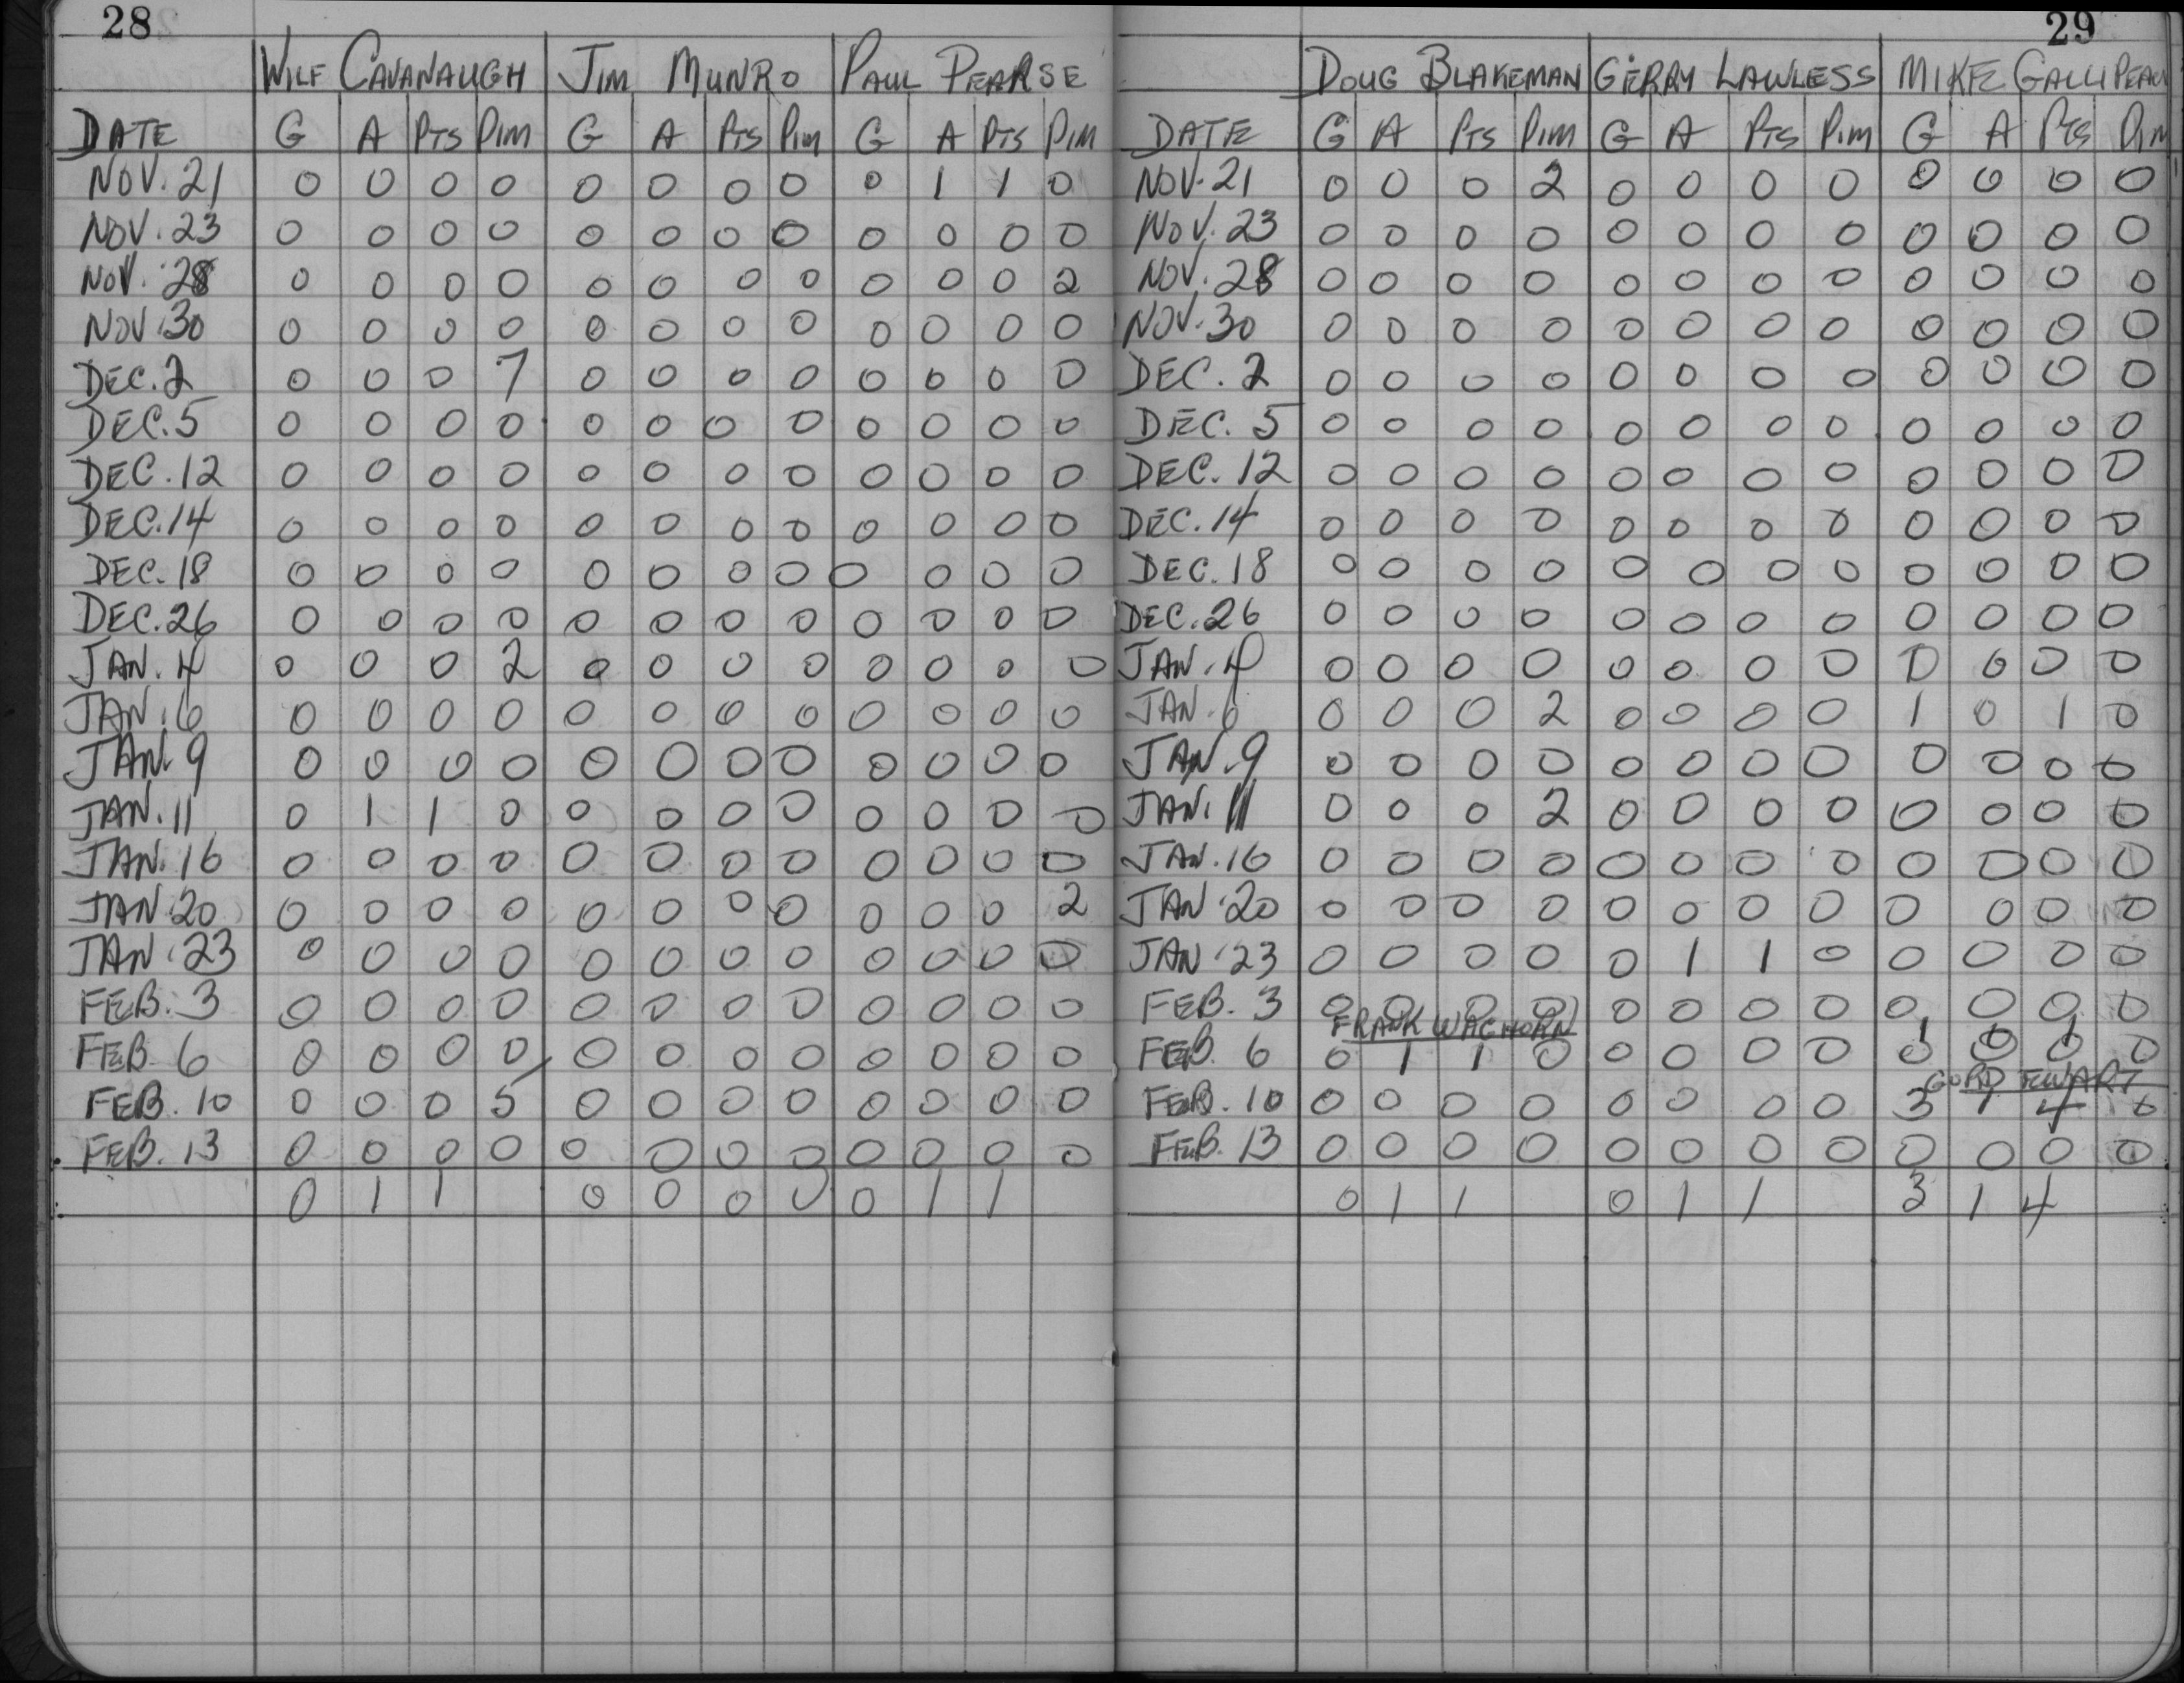 28
WILF CAVANAUGH JIM MUNRO PAUL PEARSE
DATE G A PTS PIM G A PTS PIM G A PTS PIM
NOV. 21 0 0 0 0 0 0 0 0 0 1 1 0
NOV. 23 0 0 0 0 0 0 0 0 0 0 0 0
NOV. 28 0 0 0 0 0 0 0 0 0 0 0 2
NOV. 30 0 0 0 0 0 0 0 0 0 0 0 0
DEC. 2 0 0 0 7 0 0 0 0 0 0 0 0
DEC. 5 0 0 0 0 0 0 0 0 0 0 0 0
DEC. 12 0 0 0 0 0 0 0 0 0 0 0 0
DEC. 14 0 0 0 0 0 0 0 0 0 0 0 0
DEC. 18 0 0 0 0 0 0 0 0 0 0 0 0
DEC. 26 0 0 0 0 0 0 0 0 0 0 0 0
JAN. 4 0 0 0 2 0 0 0 0 0 0 0 0
JAN. 6 0 0 0 0 0 0 0 0 0 0 0 0
JAN. 9 0 0 0 0 0 0 0 0 0 0 0 0
JAN. 11 0 1 1 0 0 0 0 0 0 0 0 0
JAN. 16 0 0 0 0 0 0 0 0 0 0 0 0
JAN. 20 0 0 0 0 0 0 0 0 0 0 0 2
JAN. 23 0 0 0 0 0 0 0 0 0 0 0 0
FEB. 3 0 0 0 0 0 0 0 0 0 0 0 0
FEB. 6 0 0 0 0 0 0 0 0 0 0 0 0
FEB. 10 0 0 0 5 0 0 0 0 0 0 0 0
FEB. 13 0 0 0 0 0 0 0 0 0 0 0 0
0 1 1 0 0 0 0 0 1 1
29
DOUG BLAKEMAN GERRY LAWLESS MIKE GALLIPEAU
DATE G A PTS PIM G A PTS PIM G A PTS PIM
NOV. 21 0 0 0 2 0 0 0 0 0 0 0 0
NOV. 23 0 0 0 0 0 0 0 0 0 0 0 0
NOV. 28 0 0 0 0 0 0 0 0 0 0 0 0
NOV. 30 0 0 0 0 0 0 0 0 0 0 0 0
DEC. 2 0 0 0 0 0 0 0 0 0 0 0 0
DEC. 5 0 0 0 0 0 0 0 0 0 0 0 0
DEC. 12 0 0 0 0 0 0 0 0 0 0 0 0
DEC. 14 0 0 0 0 0 0 0 0 0 0 0 0
DEC. 18 0 0 0 0 0 0 0 0 0 0 0 0
DEC. 26 0 0 0 0 0 0 0 0 0 0 0 0
JAN. 4 0 0 0 0 0 0 0 0 0 0 0 0
JAN. 6 0 0 0 2 0 0 0 0 1 0 1 0
JAN. 9 0 0 0 0 0 0 0 0 0 0 0 0
JAN. 11 0 0 0 2 0 0 0 0 0 0 0 0
JAN. 16 0 0 0 0 0 0 0 0 0 0 0 0
JAN. 20 0 0 0 0 0 0 0 0 0 0 0 0
JAN. 23 0 0 0 0 0 1 1 0 0 0 0 0
FEB. 3 0 0 0 0 0 0 0 0 0 0 0 0
FRANK WAGHORN 1 0 1
FEB. 6 0 1 1 0 0 0 0 0 0 0 0 0
GORD EWART
FEB. 10 0 0 0 0 0 0 0 0 3 1 4 0
FEB. 13 0 0 0 0 0 0 0 0 0 0 0 0
0 1 1 0 1 1 3 1 4